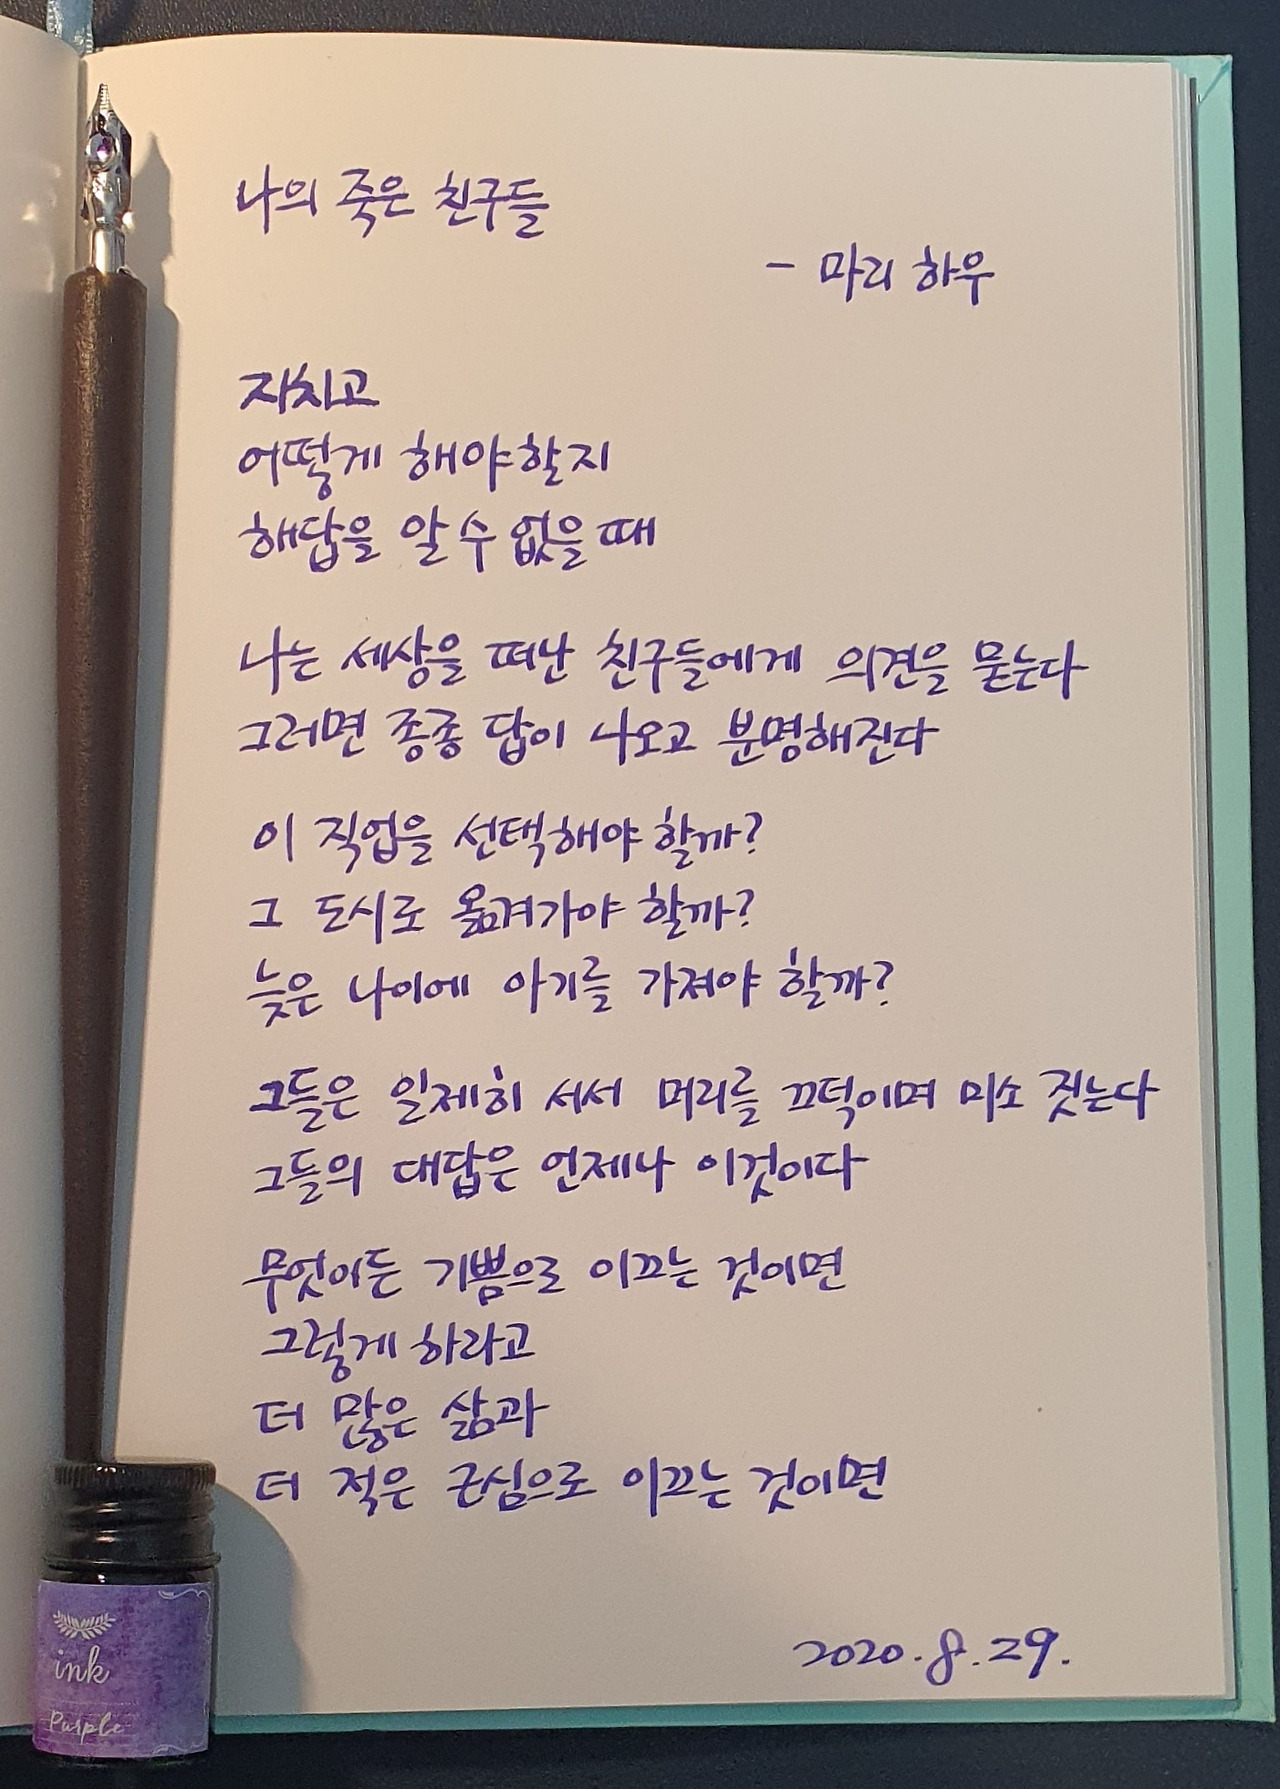 나의 죽은 친구들
- 마리 하우
지치고
어떻게 해야 할지
해답을 알 수 없을 때
나는 세상을 떠난 친구들에게 의견을 묻는다
그러면 종종 답이 나오고 분명해진다
이 직업을 선택해야 할까?
그 도시로 옮겨가야 할까?
늦은 나이에 아기를 가져야 할까?
그들은 일제히 서서 머리를 끄덕이며 미소 짓는다
그들의 대답은 언제나 이것이다
무엇이든 기쁨으로 이끄는 것이면
그렇게 하라고
더 많은 삶과
더 적은 근심으로 이끄는 것이면
2020.8.29.
ink
Purple